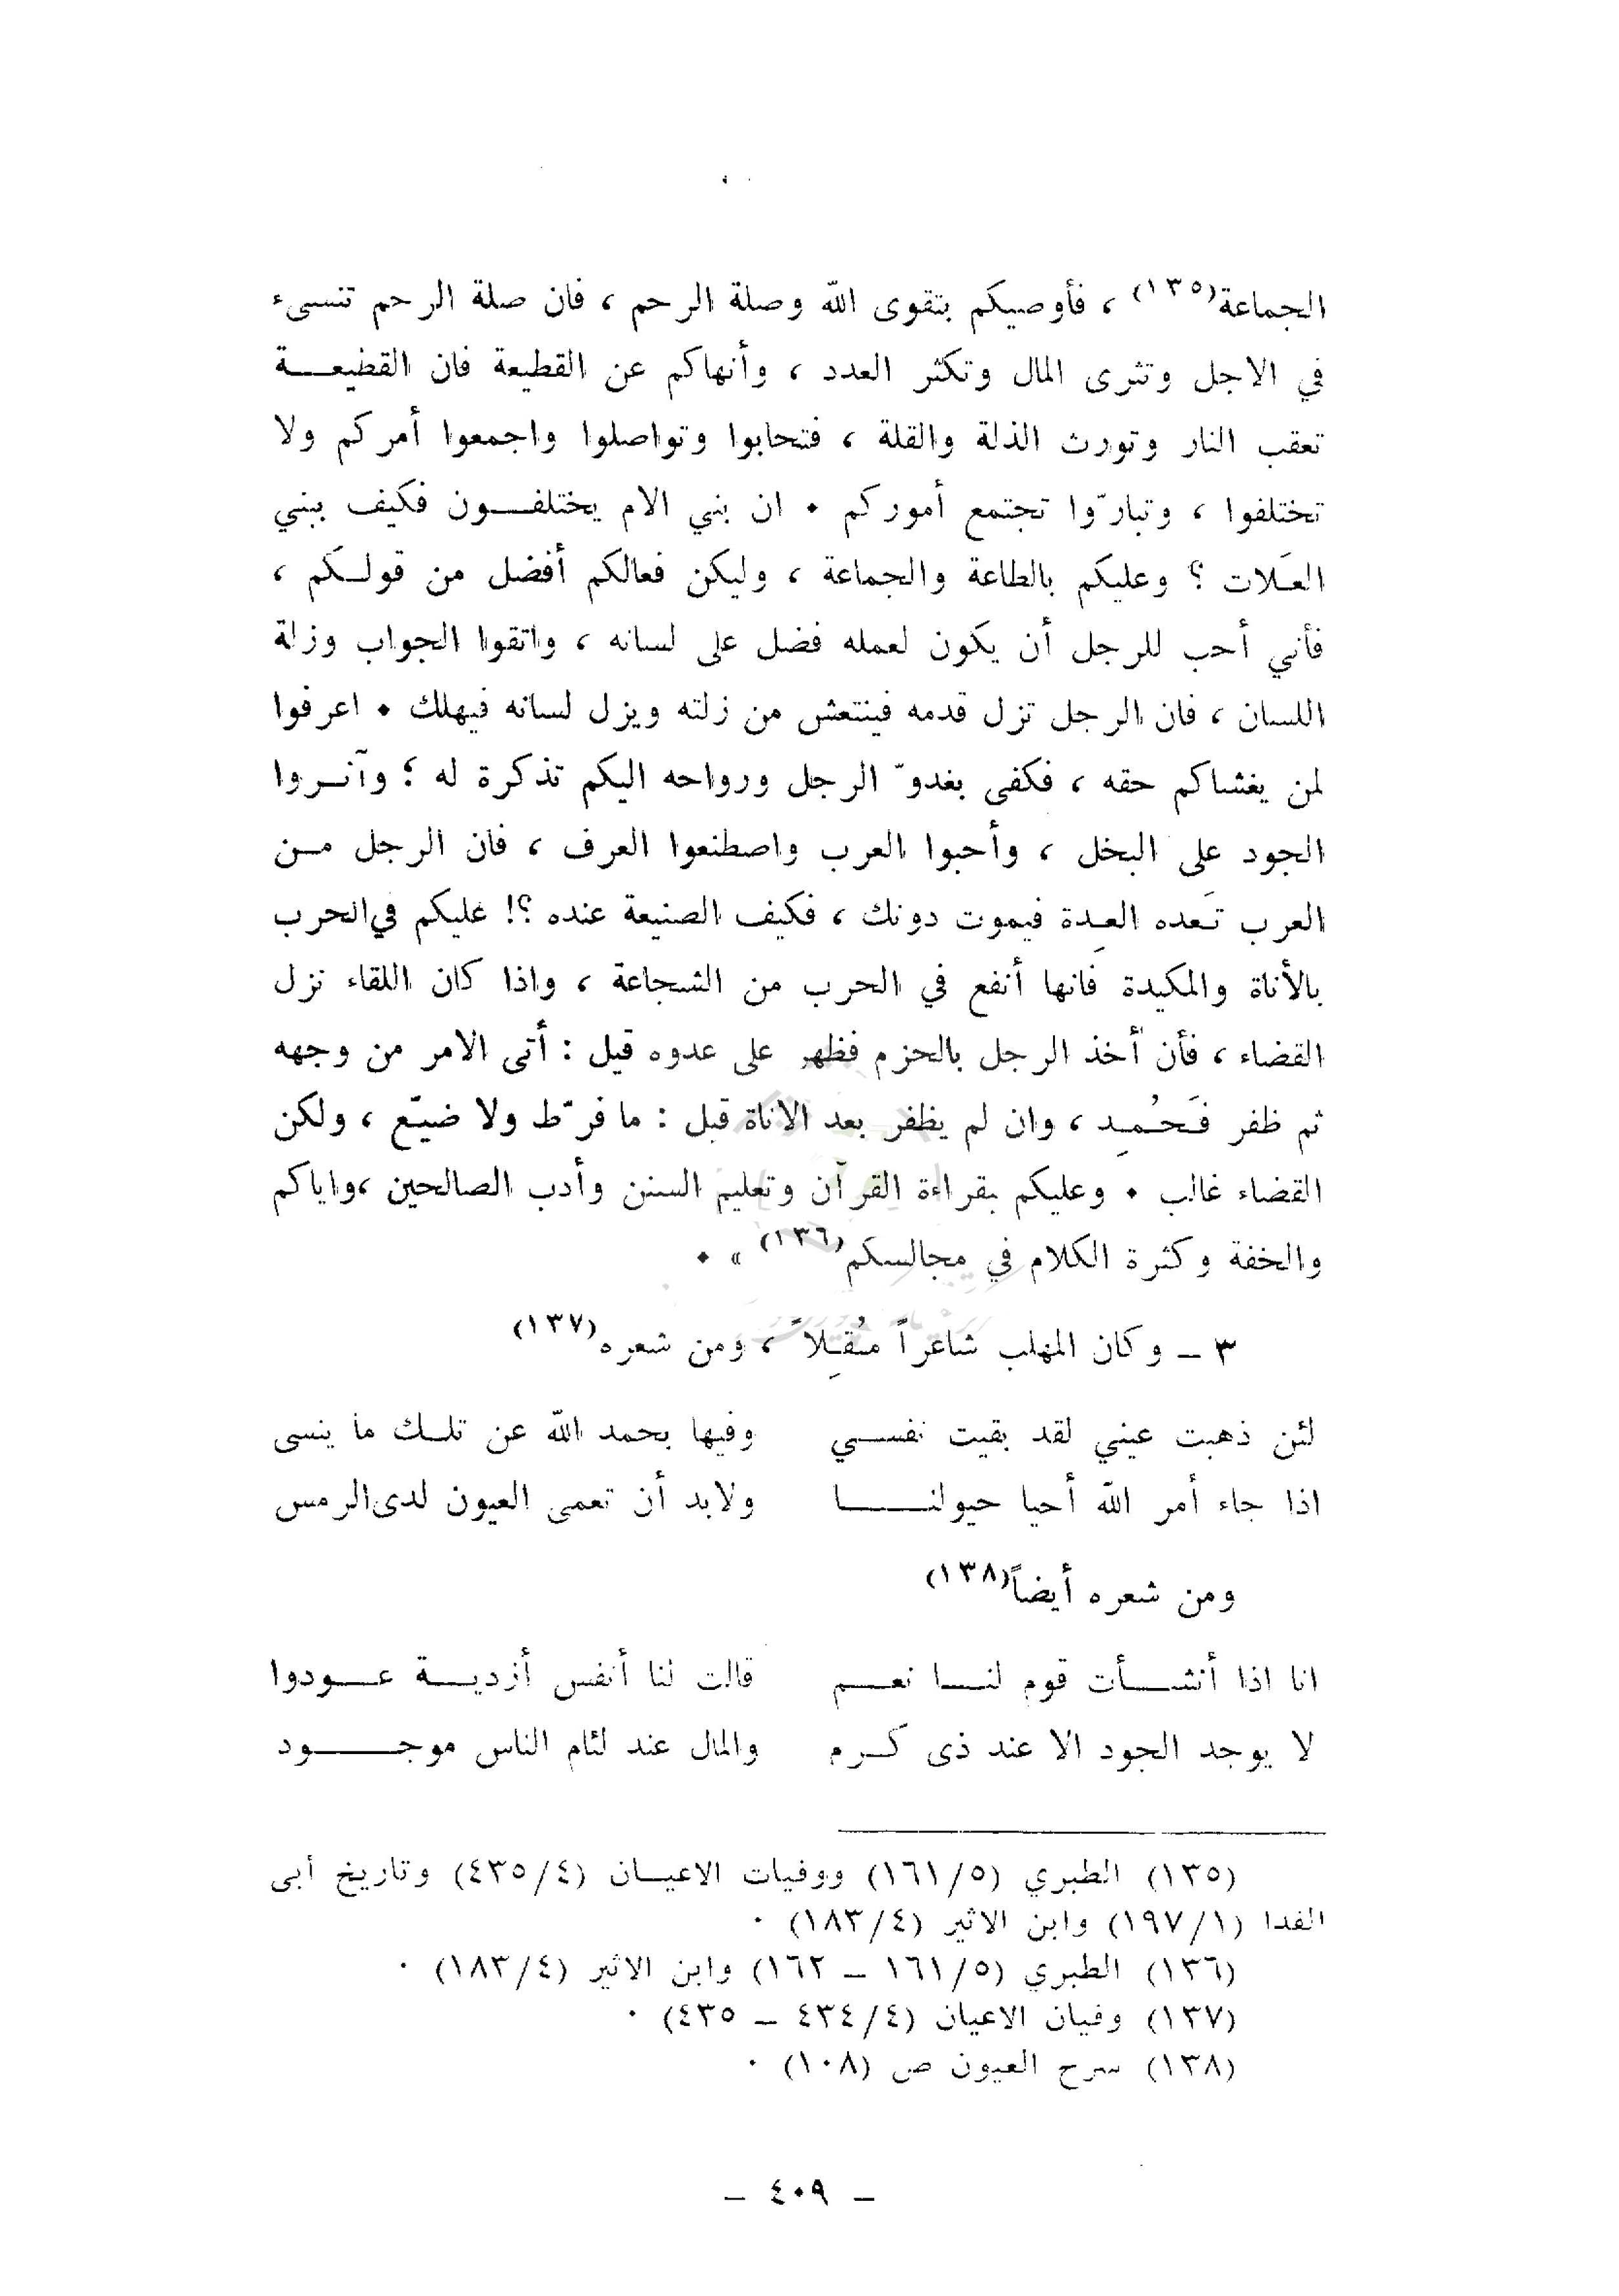 الجماعة(١٣٥) ، فأوصيكم بتقوى الله وصلة الرحم ، فان صلة الرحم تنسىء
في الاجل وتثرى المال وتكثر العدد ، وأنهاكم عن القطيعة فان القطيعـــة
تعقب النار وتورث الذلة والقلة ، فتحابوا وتواصلوا واجمعوا أمركم ولا
تختلفوا ، وتبارّوا تجتمع أموركم • ان بني الام يختلفــون فكيف ببني
العَلات ؟ وعليكم بالطاعة والجماعة ، وليكن فعالكم أفضل من قولـكم ،
فأني أحب للرجل أن يكون لعمله فضل على لسانه ، واتقوا الجواب وزلة
اللسان ، فان الرجل تزل قدمه فينتعش من زلته ويزل لسانه فيهلك • اعرفوا
لمن يغشاكم حقه ، فكفى بغدوّ الرجل ورواحه اليكم تذكرة له ؛ وآثـروا
الجود على البخل ، وأحبوا العرب واصطنعوا العرف ، فان الرجل مـن
العرب تَعده العِدة فيموت دونك ، فكيف الصنيعة عنده ؟! عليكم في الحرب
بالأناة والمكيدة فانها أنفع في الحرب من الشجاعة ، واذا كان اللقاء نزل
القضاء ، فأن أخذ الرجل بالحزم فظهر على عدوه قيل : أتى الامر من وجهه
ثم ظفر فَحُمِد ، وان لم يظفر بعد الاناة قيل : ما فرّط ولا ضيّع ، ولكن
القضاء غالب • وعليكم بقراءة القرآن وتعليم السنن وأدب الصالحين ،واياكم
والخفة وكثرة الكلام في مجالسكم(١٣٦) » •
٣ – وكان المهلب شاعراً مُقِلاً ، ومن شعره(١٣٧)
لئن ذهبت عيني لقد بقيت نفســي وفيها بحمد الله عن تلـك ما ينسى
اذا جاء أمر الله أحيا حيولنـــــا ولابد أن تعمى العيون لدى الرمس
ومن شعره أيضاً(١٣٨)
انا اذا أنشــأت قوم لنــا نعــم قالت لنا أنفس أزديــة عــودوا
لا يوجد الجود الا عند ذى كـرم والمال عند لئام الناس موجـــــود
(١٣٥) الطبري (١٦١/٥) ووفيات الاعيــان (٤٣٥/٤) وتاريخ أبى
الفدا (١٩٧/١) وابن الاثير (١٨٣/٤) •
(١٣٦) الطبري (١٦١/٥ – ١٦٢) وابن الاثير (١٨٣/٤) •
(١٣٧) وفيان الاعيان (٤٣٤/٤ – ٤٣٥) •
(١٣٨) سرح العيون ص (١٠٨) •
– ٤٠٩ –